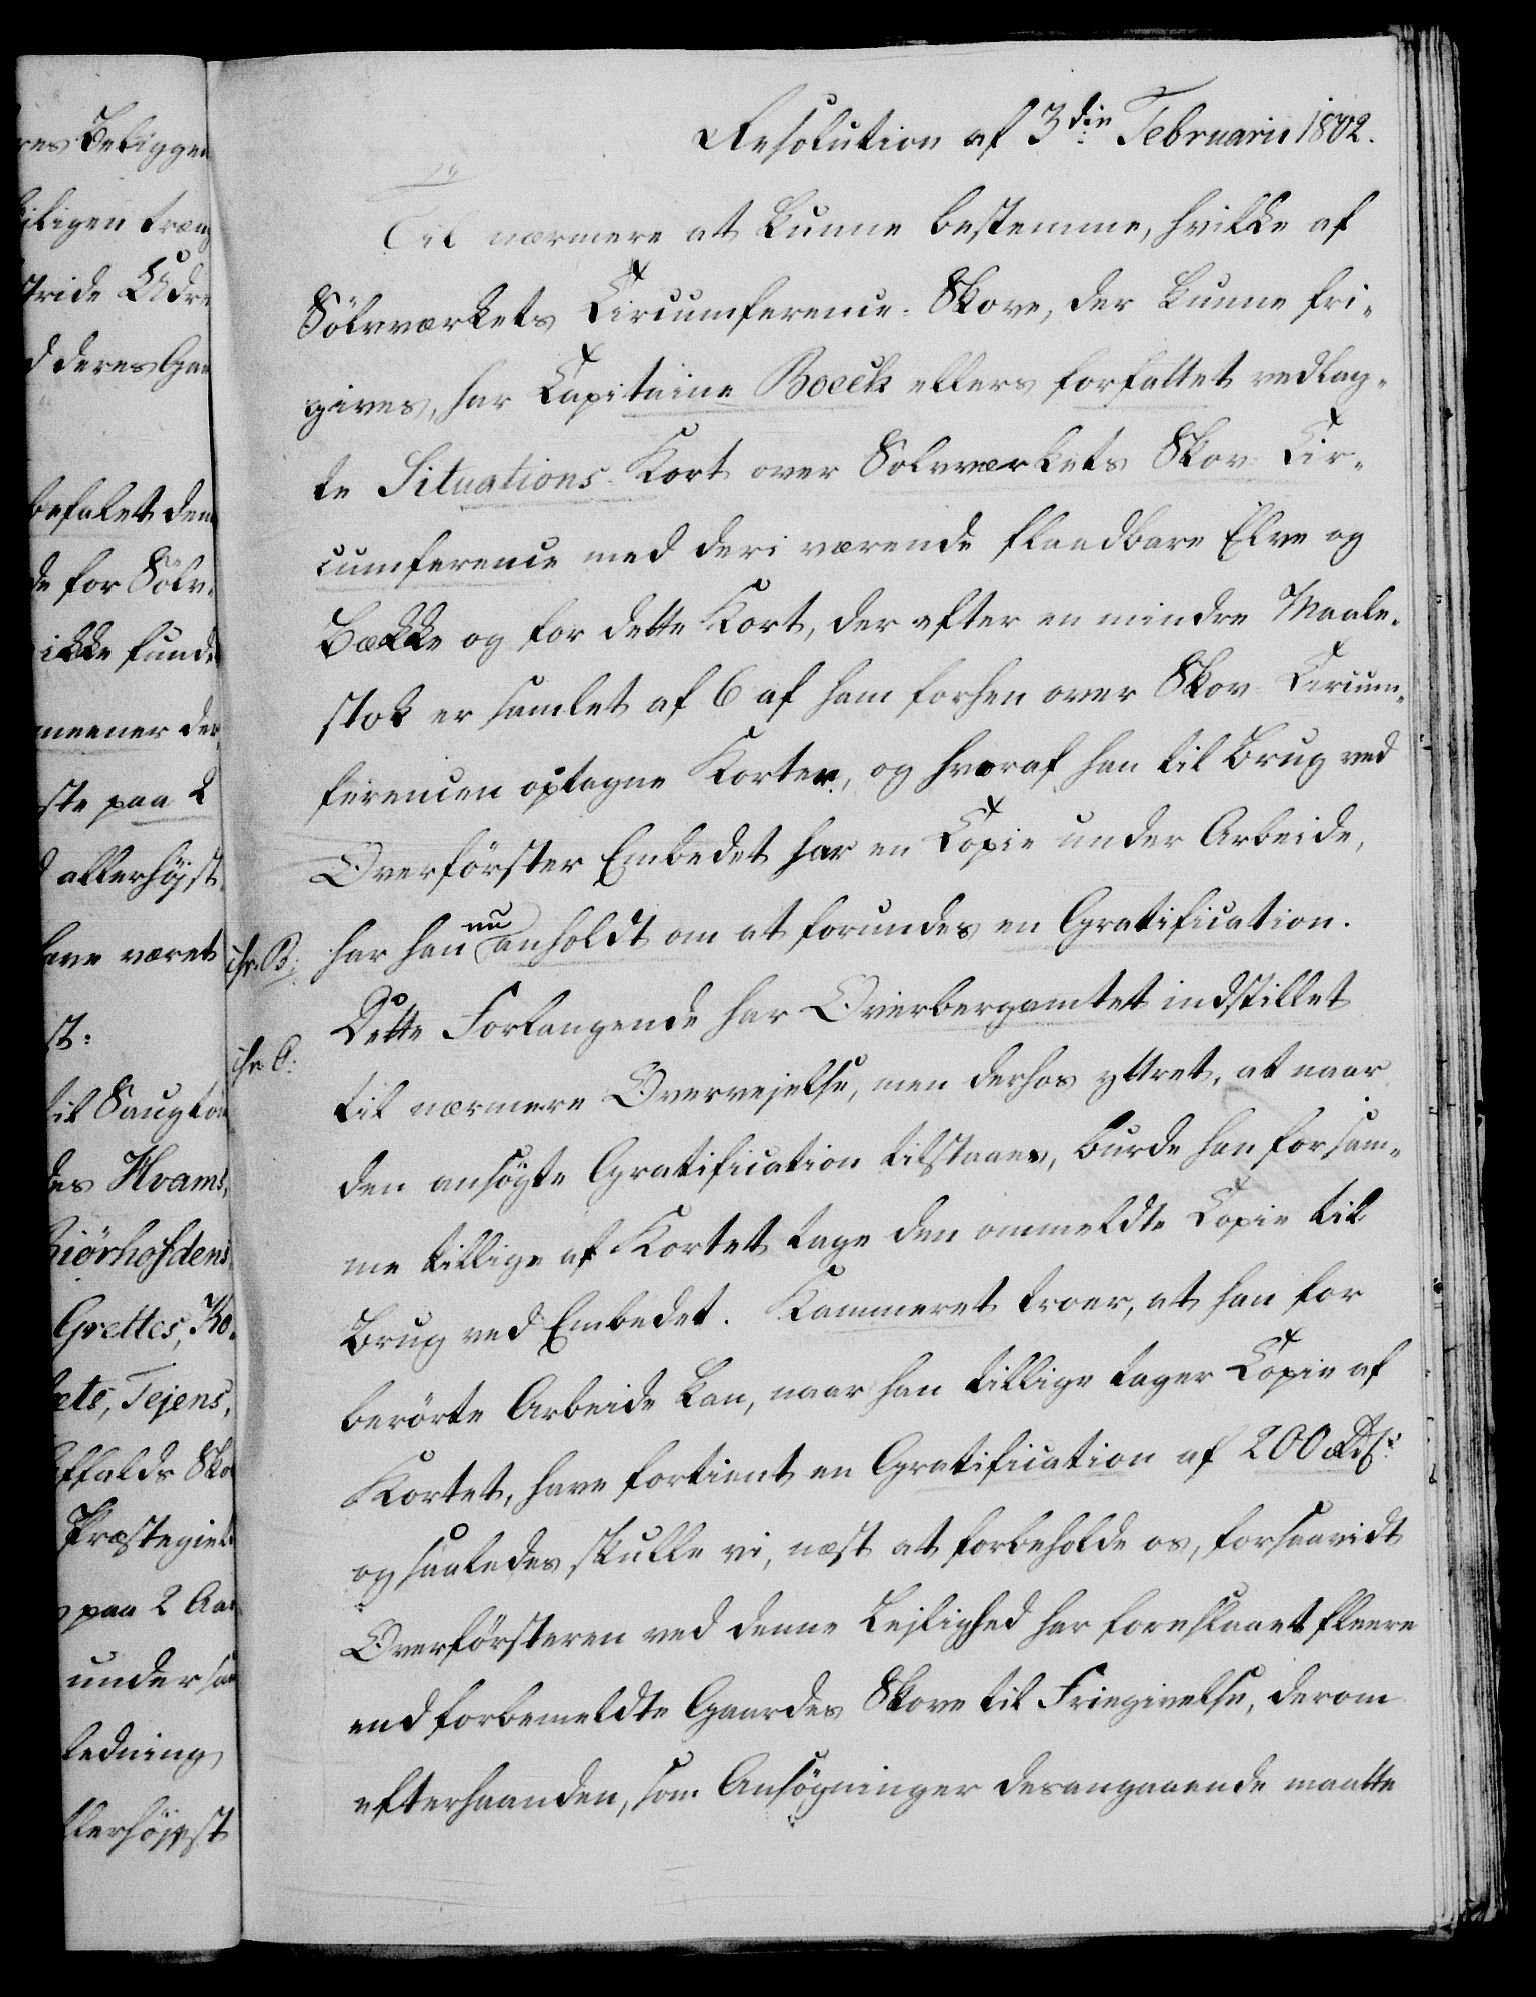 Resolution af 3die Februarii 1802.
Til nærmere at kunne bestemme, hvilke af
Sölvværkets Circumference-Skove, der kunne fri-
gives, har Capitaine Boeck ellers forfattet vedlag-
te Situations-Kort over Sölvværkets Skov-Cir-
cumference med deri værende flaadbare Elve og
Bække og for dette Kort, der efter en mindre Maale-
stok er samlet af 6 af ham forhen over Skov-Circum-
ferencen optagne Korter, og hvoraf han til Brug ved
Overförster Embedet har en Copie under Arbeide,
har han nu anholdt om at forundes en Gratification.
Dette Forlangende har Overbergamtet indstillet
til nærmere Overvejelse, men derhos yttret, at naar
den ansögte Gratification tilstaaes, burde han for sam-
me tillige af Kortet tage den ommeldte Copie til
Brug ved Embedet. Kammeret troer, at han for
berörte Arbeide kan, naar han tillige tager Copie af
Kortet, have fortient en Gratification af 200 Rd:
og saaledes skulle vi, næst at forbeholde os, forsaavidt
Overförsteren ved denne Lejlighed har foreslaaet fleere
end forbemeldte Gaardes Skove til Friegivelse, derom
efterhaanden, som Ansögninger desangaaende maatte
res Beligge
iligen træn
tride Udr
d deres Ga
befalet dem
de for Sölv-
ikke funde
meener der
ste paa 2
allerhöjst
have været
st:
til Saugtö
des Hvams,
Biörhofdens
Grettes, Ko-
ets, Tejens,
ffalds Sko
Præstegiel
paa 2 Aar
under sa
ledning
llerhöjst